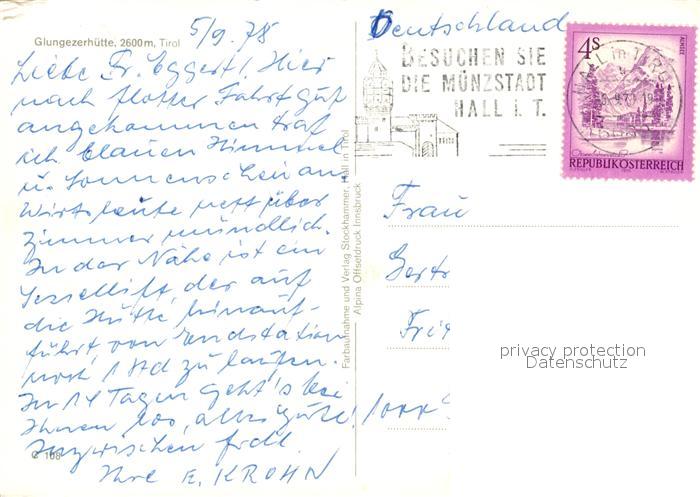 5/9.78
Glungezerhütte, 2600 m, Tirol
Liebe Fr. Eggert! Hier
nach flotter Fahrt gut
angekommen traf
ich blauen Himmel
u. Sonnenschein an
Wirtsleute nett über
Zimmer mündlich.
In der Nähe ist ein
Sessellift, der auf
die Hütte hinauf-
führt, von Endstation
noch 1 Std zu laufen.
In 14 Tagen geht's bei
Ihnen los, alles Gute!
Inzwischen frdl.
Ihre E. KROHN
C 108
Farbaufnahme und Verlag Stockhammer, Hall in Tirol
Alpina Offsetdruck Innsbruck
Deutschland
BESUCHEN SIE
DIE MÜNZSTADT
HALL i. T.
4S
ALMSEE
REPUBLIK ÖSTERREICH
HALL in TIROL
Frau
Gertr
Frie
privacy protection
Datenschutz